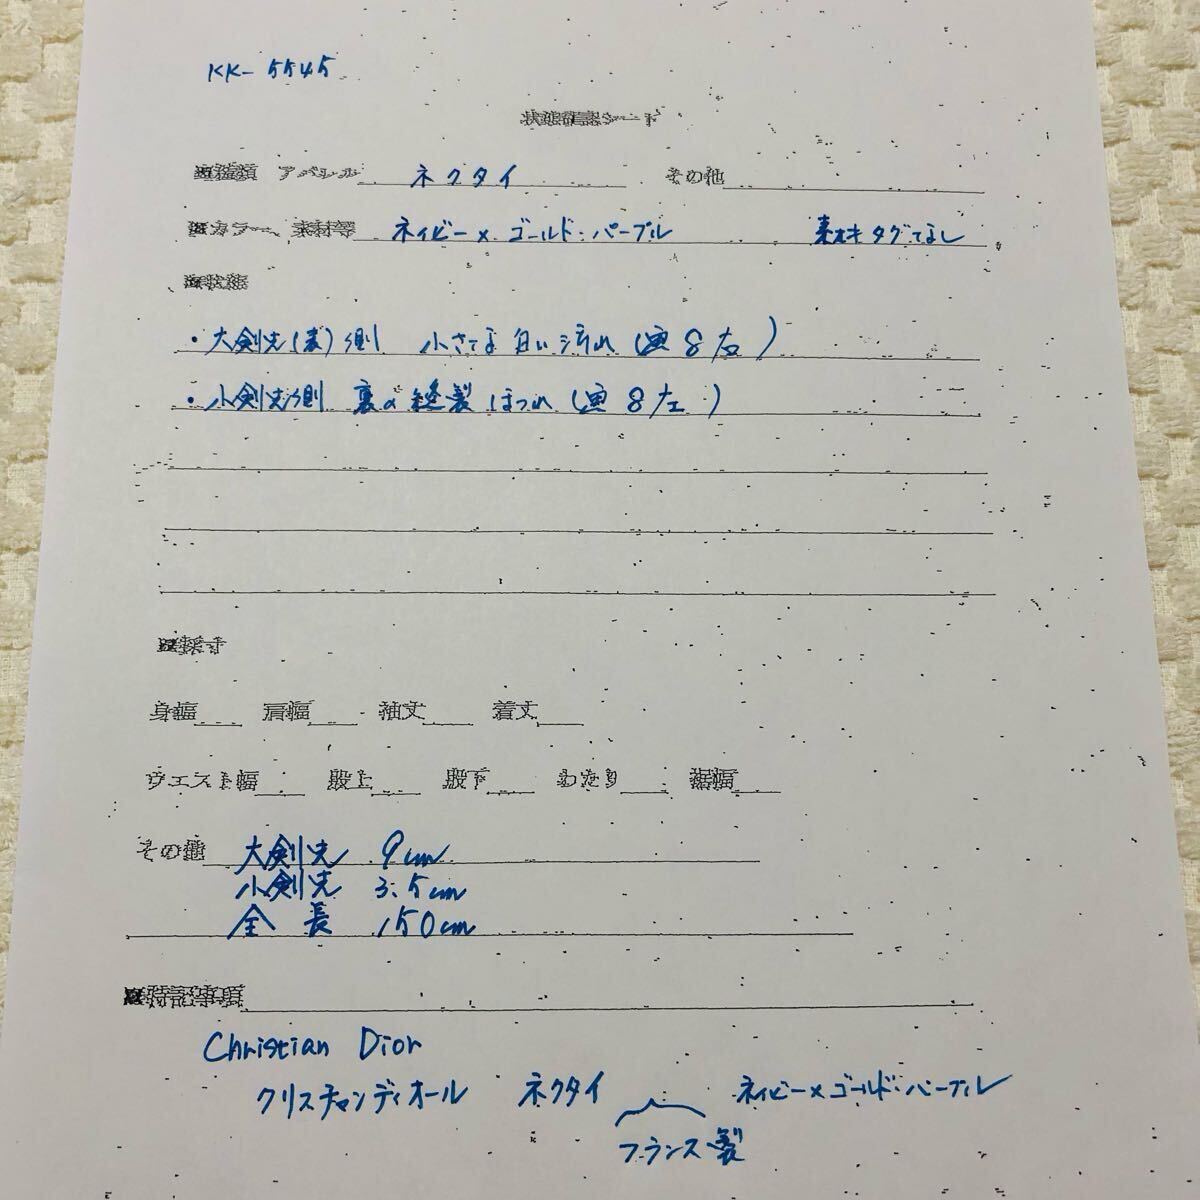 KK-5545
状態確認シート
■種類 アパレル ネクタイ その他
■カラー、素材等 ネイビー×ゴールド・パープル 素材タグなし
■状態
・大剣先(表)側 小さな白い汚れ(画8右)
・小剣先側 裏の縫製ほつれ(画8左)
■採寸
身幅 肩幅 袖丈 着丈
ウエスト幅 股上 股下 わたり 裾幅
その他 大剣先 9cm
小剣先 3.5cm
全長 150cm
■特記事項
Christian Dior
クリスチャンディオール ネクタイ ネイビー×ゴールド・パープル
フランス製